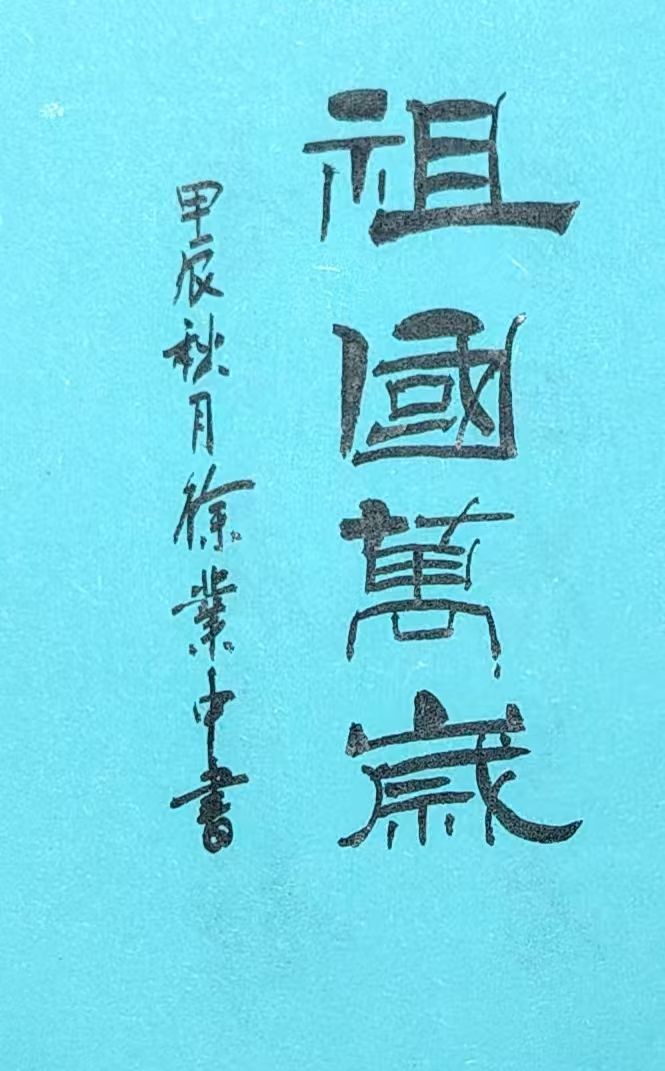 祖國萬歲
甲辰秋月徐業中書